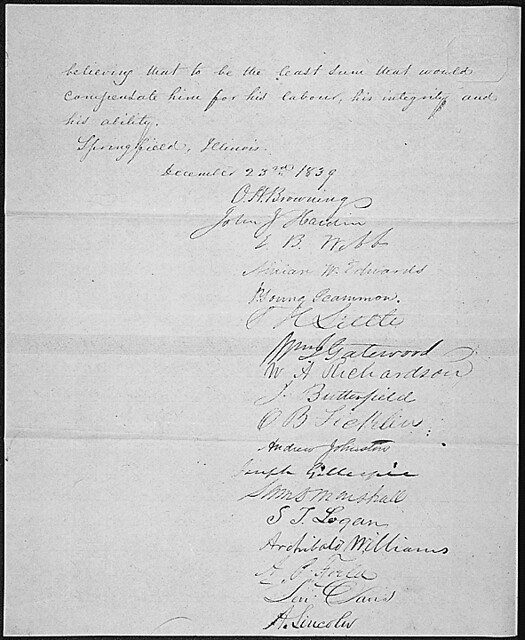 believing that to be the least sum that would
compensate him for his labour, his integrity and
his ability.
Springfield, Illinois.
December 23rd 1839
O. H. Browning
John J Hardin
E B. Webb
Ninian W. Edwards
J Young Scammon.
Wm J Gatewood
W A Richardson
J. Butterfield
O B Ficklin
Andrew Johnston
Joseph Gillespie
Marshall
S T. Logan
Archibald Williams
Davis
A. Lincoln